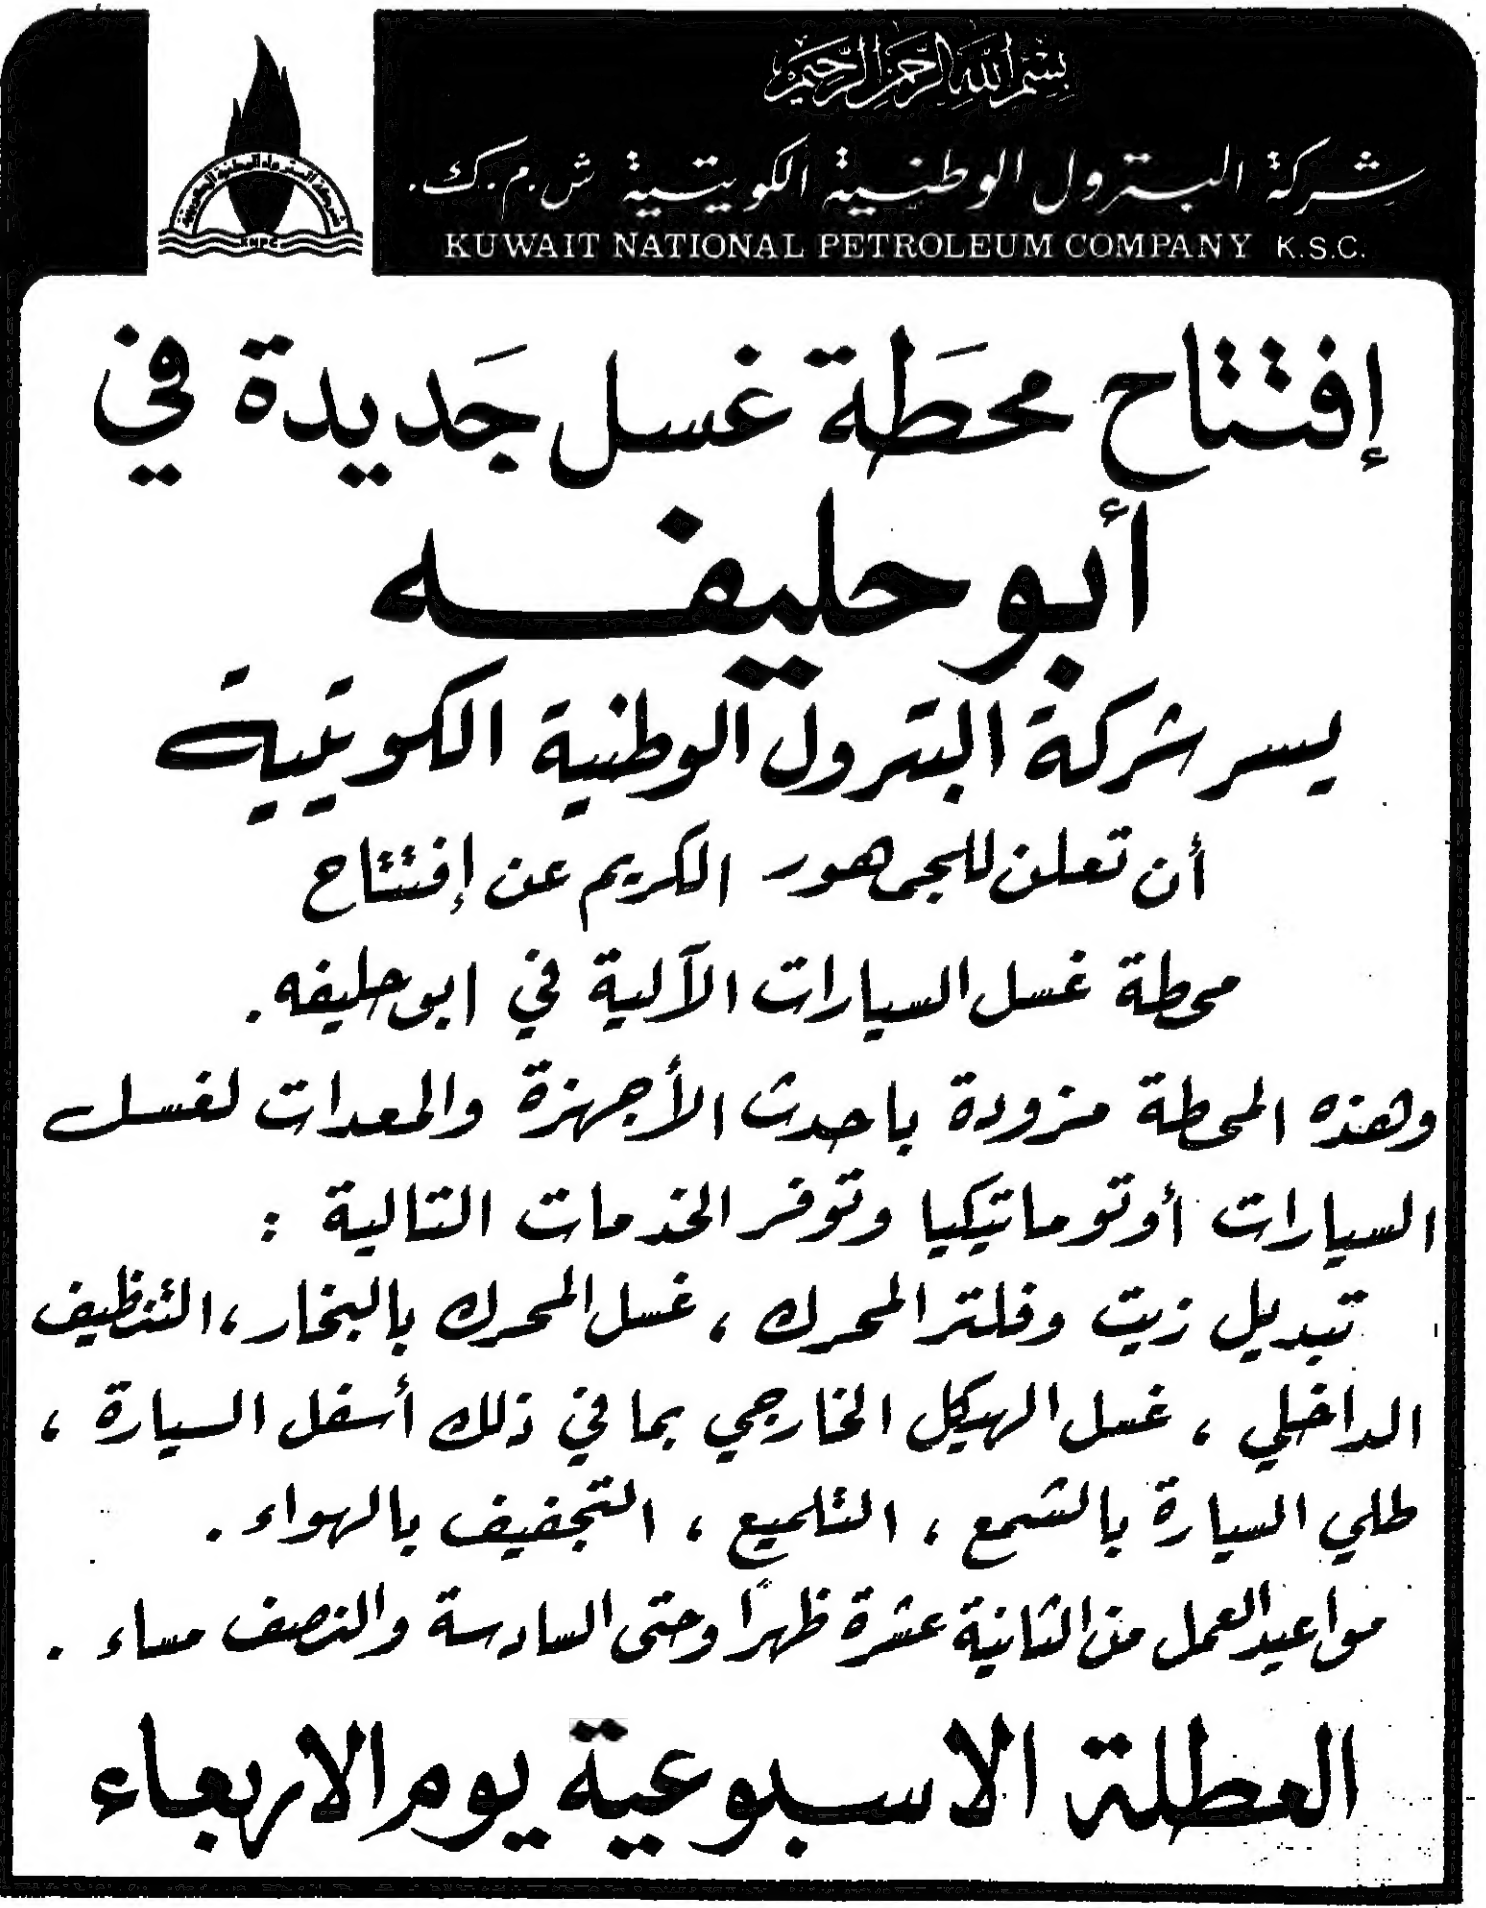 بسم الله الرحمن الرحيم
شركة البترول الوطنية الكويتية ش.م.ك.
KUWAIT NATIONAL PETROLEUM COMPANY K.S.C.
شركة البترول الوطنية الكويتية
KNPC
إفتتاح محَطَة غسل جَديدة في
أبو حليفه
يسر شركة البترول الوطنية الكويتية
أن تعلن للجمهور الكريم عن إفتتاح
محطة غسل السيارات الآلية في ابو حليفه.
وهذه المحطة مزودة باحدث الأجهزة والمعدات لغسل
السيارات أوتوماتيكيا وتوفر الخدمات التالية :
تبديل زيت وفلتر المحرك ، غسل المحرك بالبخار ، التنظيف
الداخلي ، غسل الهيكل الخارجي بما في ذلك أسفل السيارة ،
طلي السيارة بالشمع ، التلميع ، التجفيف بالهواء .
مواعيد العمل من الثانية عشرة ظهرًا وحتى السادسة والنصف مساء .
العطلة الاسبوعية يوم الاربعاء